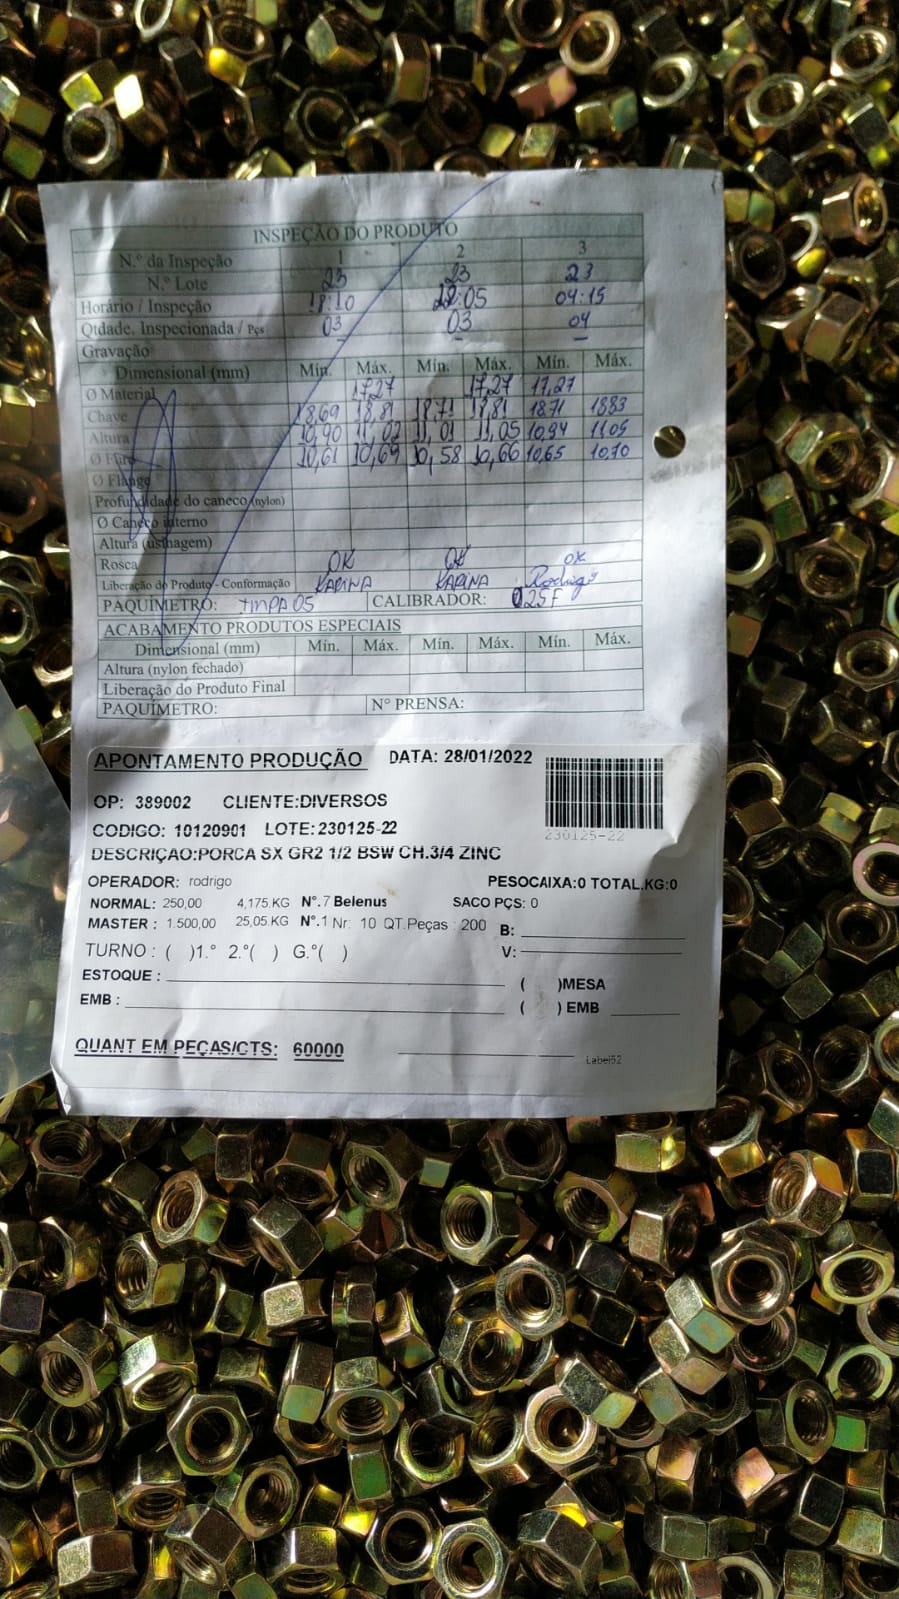 INSPEÇÃO DO PRODUTO
N.º da Inspeção 1 2 3
N.º Lote 23 23 23
Horário / Inspeção 18:10 22:05 04:15
Qtdade. Inspecionada / Pçs 03 03 04
Gravação - - -
Dimensional (mm) Mín. Máx. Mín. Máx. Mín. Máx.
Ø Material 17,27 17,27 17,27
Chave 18,69 18,81 18,71 18,81 18,71 18,83
Altura 10,90 11,02 11,01 11,05 10,94 11,05
Ø Furo 10,61 10,69 10,58 10,66 10,65 10,70
Ø Flange
Profundidade do caneco (nylon)
Ø Caneco interno
Altura (usinagem)
Rosca OK OK OK
Liberação do Produto - Conformação KARINA KARINA Rodrigo
PAQUÍMETRO: IMPA 05 CALIBRADOR: 025F
ACABAMENTO PRODUTOS ESPECIAIS
Dimensional (mm) Mín. Máx. Mín. Máx. Mín. Máx.
Altura (nylon fechado)
Liberação do Produto Final
PAQUÍMETRO: Nº PRENSA:
APONTAMENTO PRODUÇÃO DATA: 28/01/2022
OP: 389002 CLIENTE:DIVERSOS
CODIGO: 10120901 LOTE:230125-22
230125-22
DESCRIÇAO:PORCA SX GR2 1/2 BSW CH.3/4 ZINC
OPERADOR: rodrigo PESOCAIXA:0 TOTAL.KG:0
NORMAL: 250,00 4,175.KG Nº.7 Belenus SACO PÇS: 0
MASTER : 1.500,00 25,05.KG Nº.1 Nr: 10 QT.Peças : 200 B:
TURNO : ( )1.º 2.º( ) G.º( ) V:
ESTOQUE : ( )MESA
EMB : ( ) EMB
QUANT EM PEÇAS/CTS: 60000
Label52